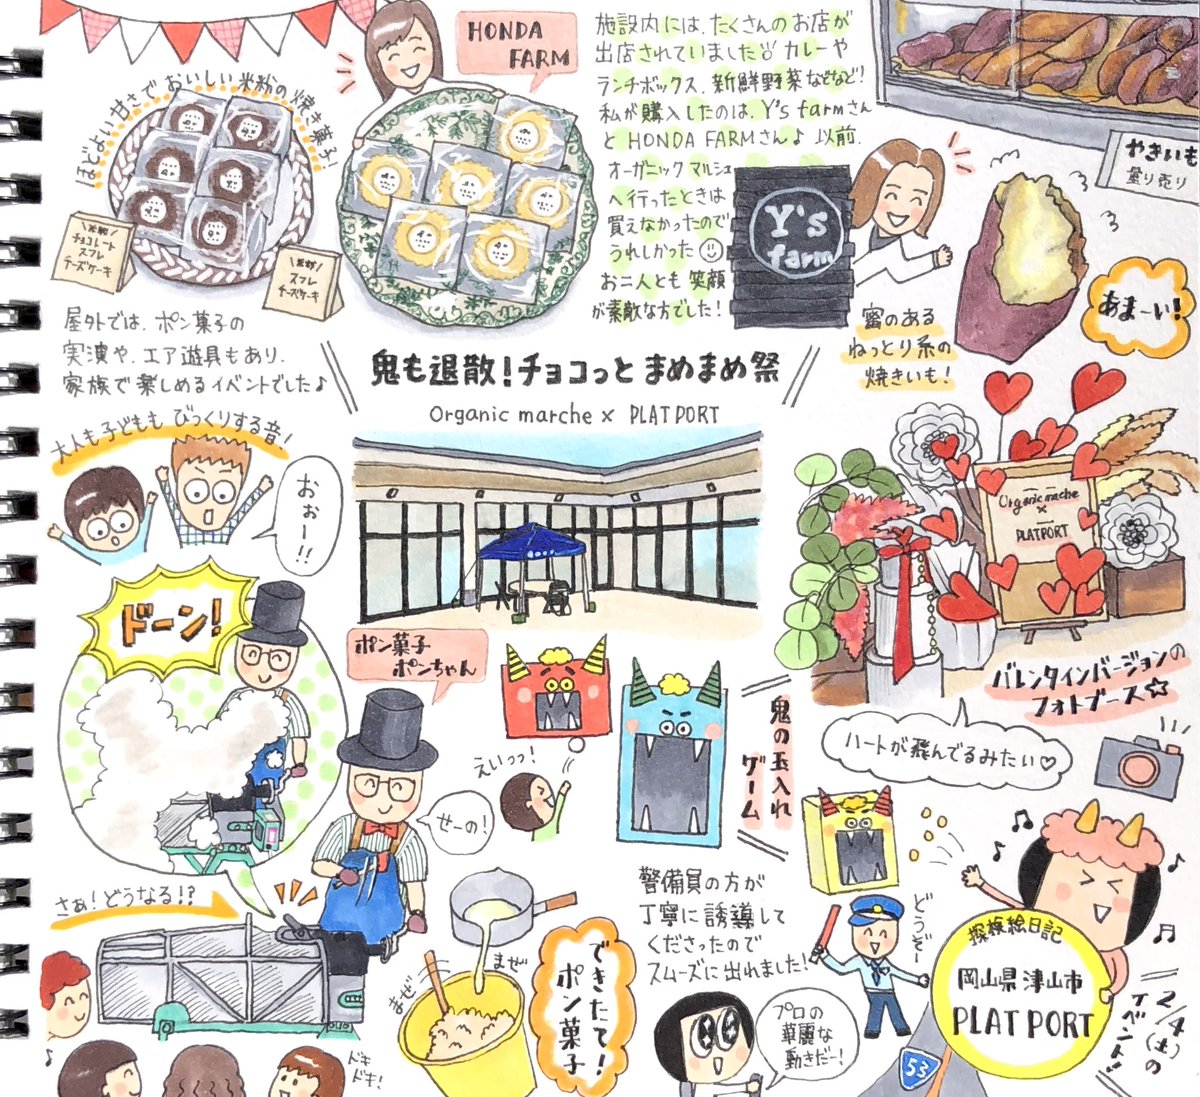 HONDA
FARM
ほどよい甘さで おいしい 米粉の焼き菓子!
米粉
チョコレート
スフレ
チーズケーキ
米粉
スフレ
チーズケーキ
施設内には、たくさんのお店が
出店されていました カレーや
ランチボックス、新鮮野菜などなど!
私が購入したのは、Y's farmさん
と HONDA FARMさん♪ 以前、
オーガニックマルシェ
へ行ったときは
買えなかったので
うれしかった
お二人とも 笑顔
が素敵な方でした!
Y's
farm
やきいも
量り売り
あまーい!
蜜のある
ねっとり系の
焼きいも!
屋外では、ポン菓子の
実演や、エア遊具もあり、
家族で楽しめるイベントでした♪
鬼も退散!チョコっと まめまめ祭
Organic marche × PLAT PORT
大人も子どもも びっくりする音!
おぉー!!
ドーン!
ポン菓子
ポンちゃん
せーの!
さぁ!どうなる!?
ドキ
ドキ!
まぜ
まぜ
できたて!
ポン菓子
えいっっ!
鬼の玉入れ
ゲーム
Organic mache
×
PLATPORT
バレンタインバージョンの
フォトブース☆
ハートが飛んでるみたい♡
警備員の方が
丁寧に誘導して
くださったので
スムーズに出れました!
どうぞー
プロの
華麗な
動きだー!
53
探検絵日記
岡山県津山市
PLAT PORT
2/4(土)の
イベント!!